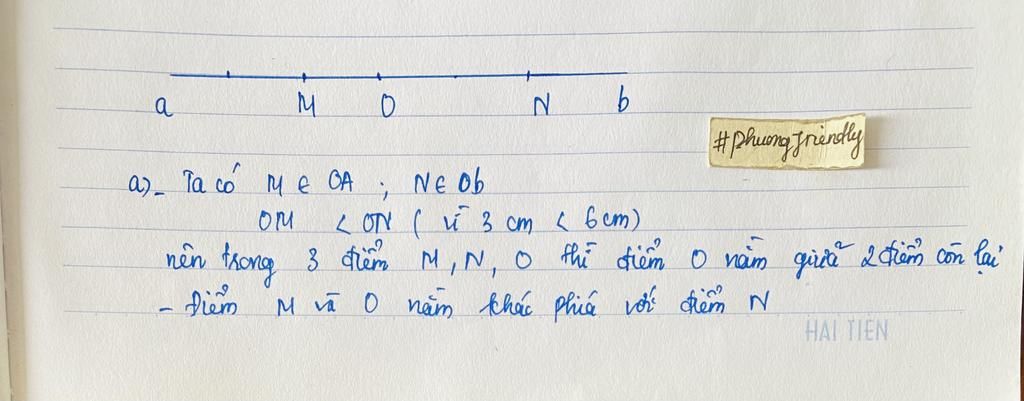 a M O N b
#phuongfriendly
a)_ Ta có M ∈ OA ; N ∈ Ob
OM < ON ( vì 3 cm < 6 cm)
nên trong 3 điểm M, N, O thì điểm O nằm giữa 2 điểm còn lại
- Điểm M và O nằm khác phiá với điểm N
HẢI TIẾN